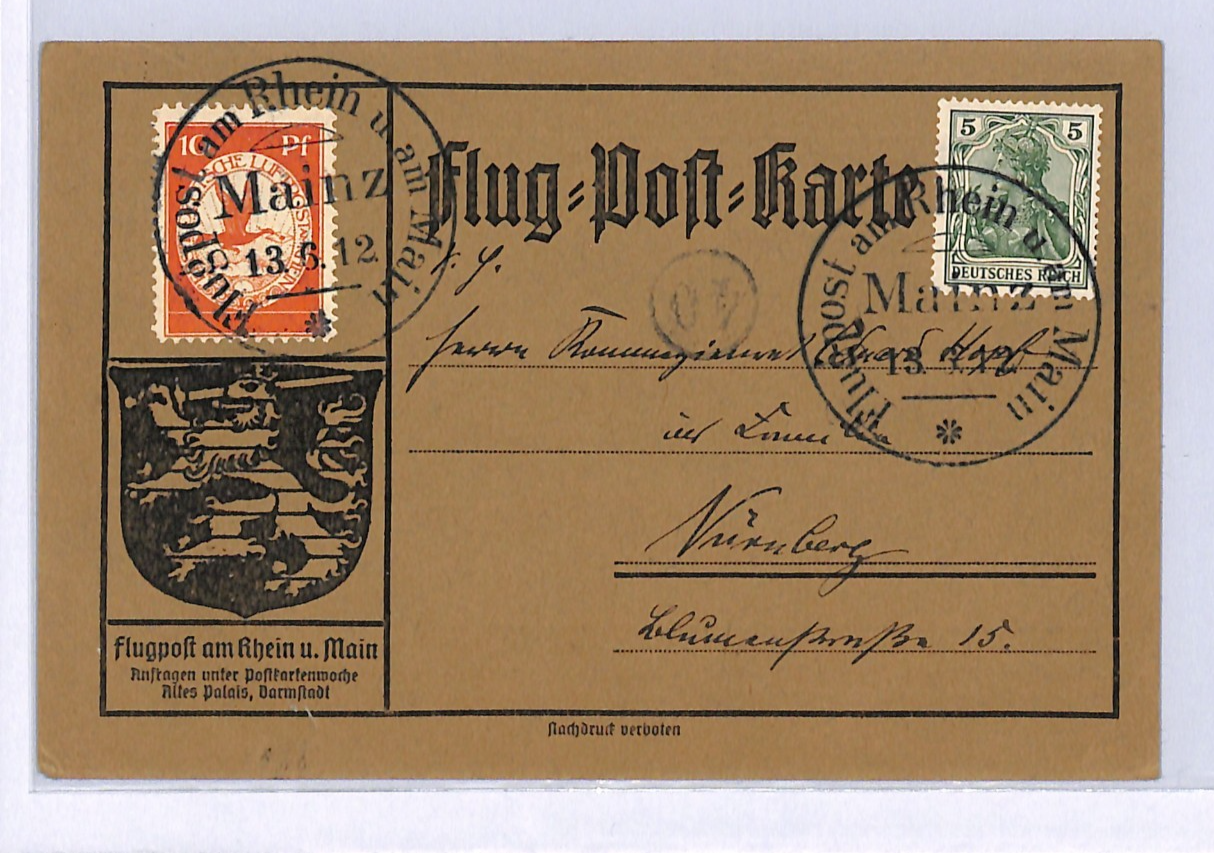 Flug-Post-Karte
10 Pf
Flugpost am Rhein u. am Main
Mainz
13.6.12
5 5
DEUTSCHES REICH
Flugpost am Rhein u. am Main
Mainz
13. 12
Herrn Kommerzienrat
Nürnberg
Blumenstraße 15.
Flugpost am Rhein u. Main
Anfragen unter Postkartenwoche
Altes Palais, Darmstadt
Nachdruck verboten